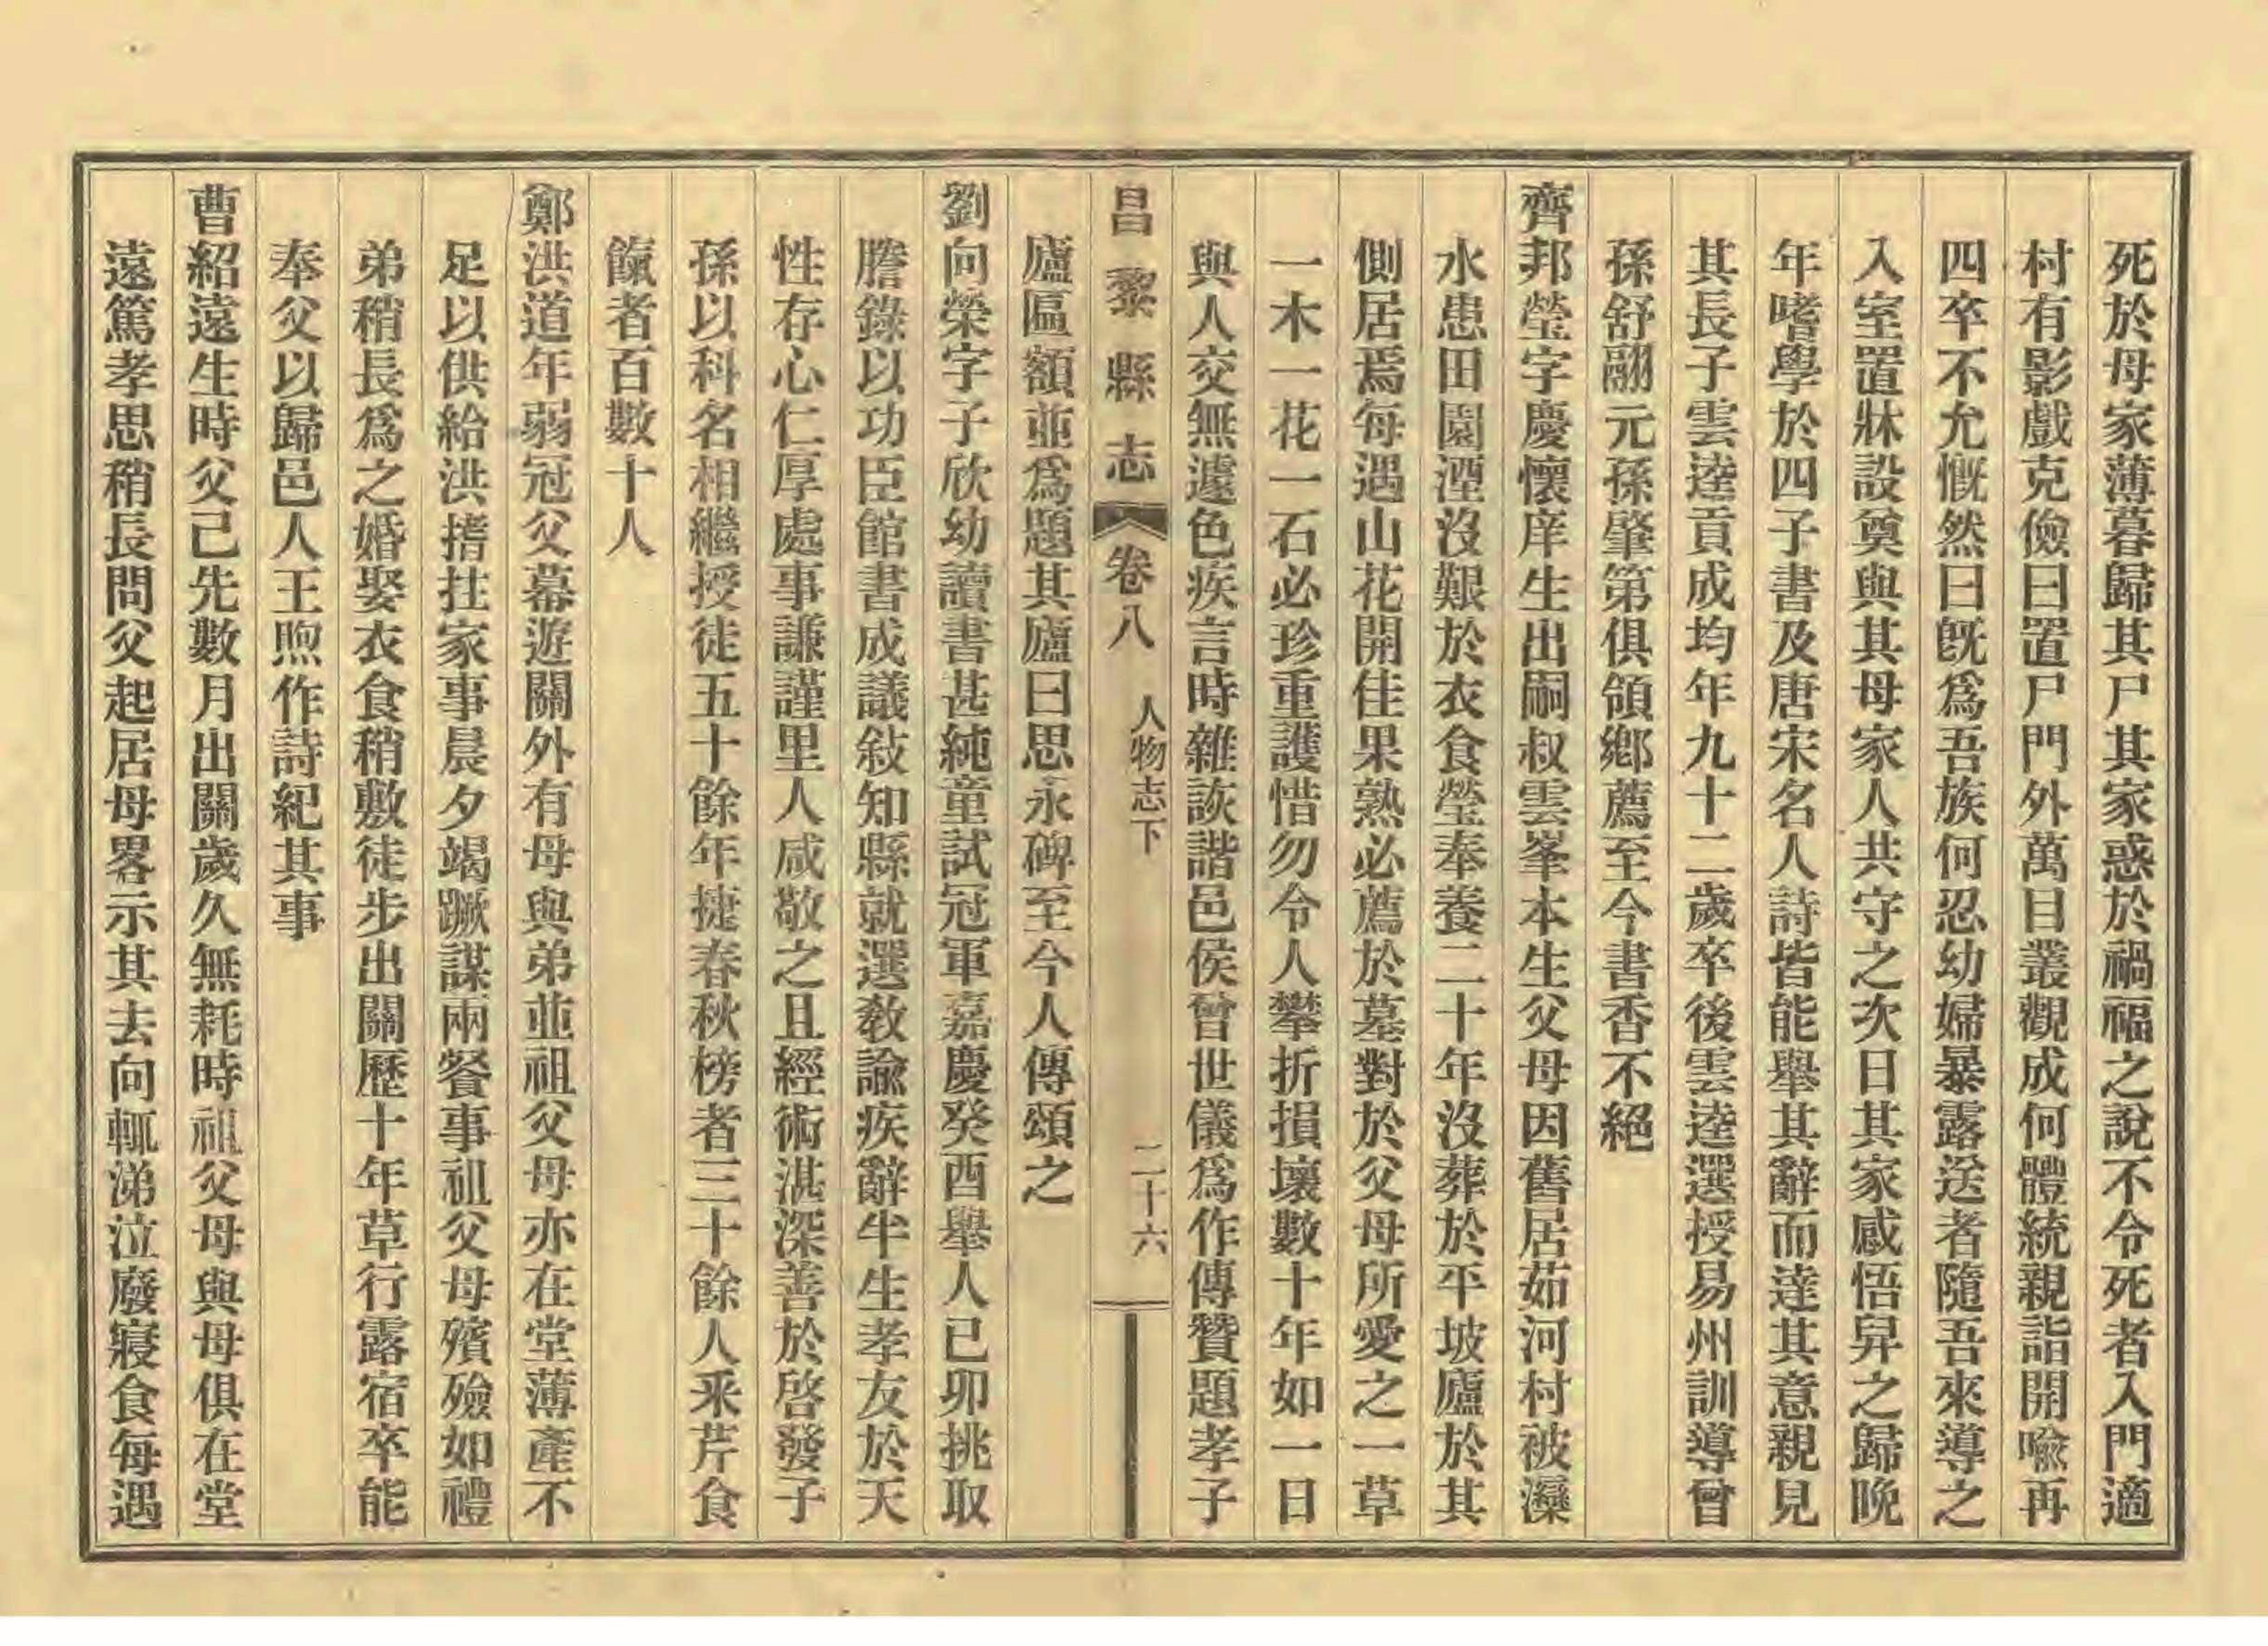 死於母家薄暮歸其尸其家惑於禍福之說不令死者入門適
村有影戲克儉曰置尸門外萬目叢觀成何體統親詣開喩再
四卒不允慨然曰旣爲吾族何忍幼婦暴露送者隨吾來導之
入室置牀設奠與其母家人共守之次日其家感悟舁之歸晚
年嗜學於四子書及唐宋名人詩皆能舉其辭而達其意親見
其長子雲逵貢成均年九十二歲卒後雲逵選授易州訓導曾
孫舒翮元孫肇第俱領鄕薦至今書香不絕
齊邦瑩字慶懷庠生出嗣叔雲峯本生父母因舊居茹河村被灤
水患田園湮沒艱於衣食瑩奉養二十年沒葬於平坡廬於其
側居焉每遇山花開佳果熟必薦於墓對於父母所愛之一草
一木一花一石必珍重護惜勿令人攀折損壞數十年如一日
與人交無遽色疾言時雜詼諧邑侯曾世儀爲作傳贊題孝子
昌黎縣志 卷八 人物志下 二十六
廬匾額並爲題其廬曰思永碑至今人傳頌之
劉向榮字子欣幼讀書甚純童試冠軍嘉慶癸酉舉人己卯挑取
謄錄以功臣館書成議敍知縣就選敎諭疾辭牛生孝友於天
性存心仁厚處事謙謹里人咸敬之且經術湛深善於啓發子
孫以科名相繼授徒五十餘年捷春秋榜者三十餘人釆芹食
餼者百數十人
鄭洪道年弱冠父幕遊關外有母與弟並祖父母亦在堂薄產不
足以供給洪揹拄家事晨夕竭蹶謀兩餐事祖父母殯殮如禮
弟稍長爲之婚娶衣食稍敷徒步出關歷十年草行露宿卒能
奉父以歸邑人王煦作詩紀其事
曹紹遠生時父已先數月出關歲久無耗時祖父母與母俱在堂
遠篤孝思稍長問父起居母畧示其去向輒涕泣廢寢食每遇